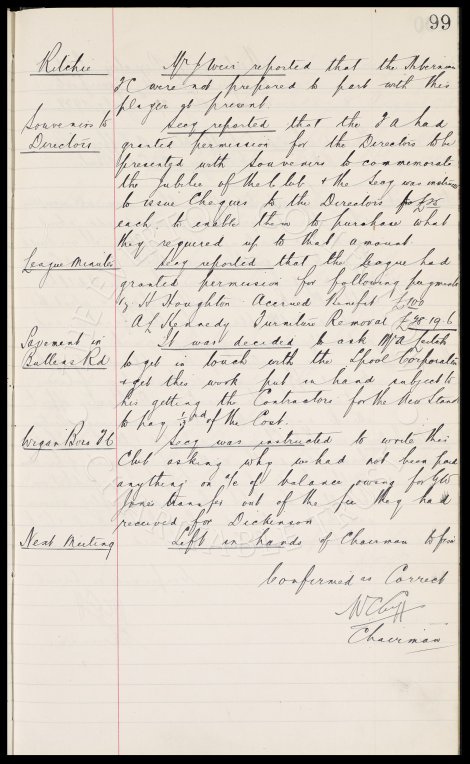 99
Ritchie Mr J Weir reported that the Hibernian
FC were not prepared to part with this
player at present.
Souvenirs to Secy reported that the F A had
Directors granted permission for the Directors to be
presented with Souvenirs to commemorate
the Jubilee of the Club & the Secy was instructed
to issue Cheques to the Directors for £25
each to enable them to purchase what
they required up to that amount
League Minutes Secy reported that the League had
granted permission for following payments
H Houghton Accrued Benefit £100
A L Kennedy Furniture Removal £28.19.6
Pavement in It was decided to ask Mr A Leitch
Bullens Rd to get in touch with the Lpool Corporation
& get this work put in hand subject to
his getting the Contractors for the New Stand
to pay 1/3rd of the Cost.
Wigan Boro FC Secy was instructed to write this
Club asking why we had not been paid
anything on a/c of balance owing for GW
Jones transfer out of the fee they had
received for Dickenson
Next Meeting Left in hands of Chairman to fix
Confirmed as Correct
W C Cuff
Chairman